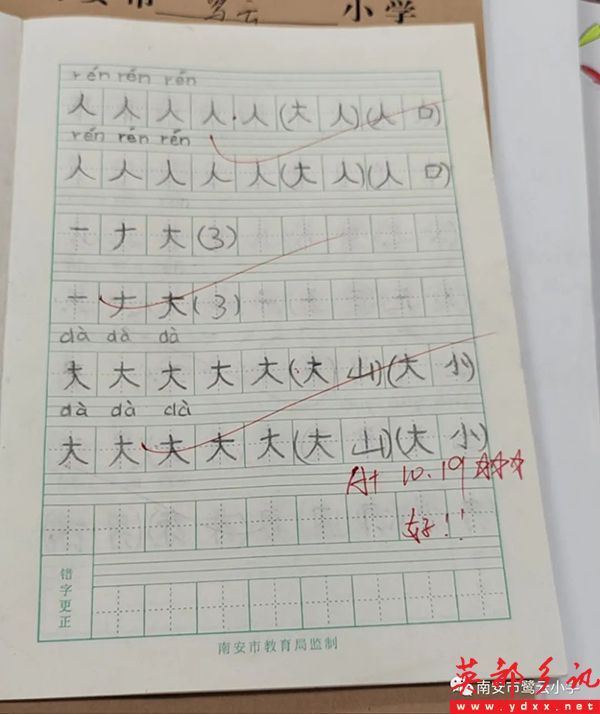 鹭云 小学
rén rén rén
人 人 人 人 人 (大 人) (人 口)
rén rén rén
人 人 人 人 人 (大 人) (人 口)
一 ナ 大 (3)
一 ナ 大 (3)
dà dà dà
大 大 大 大 大 (大 山) (大 小)
dà dà dà
大 大 大 大 大 (大 山) (大 小)
A+ 10.19 ☆☆☆
好!!
错字更正
南安市教育局监制
南安市鹭云小学
英都乡讯
www.ydxx.net